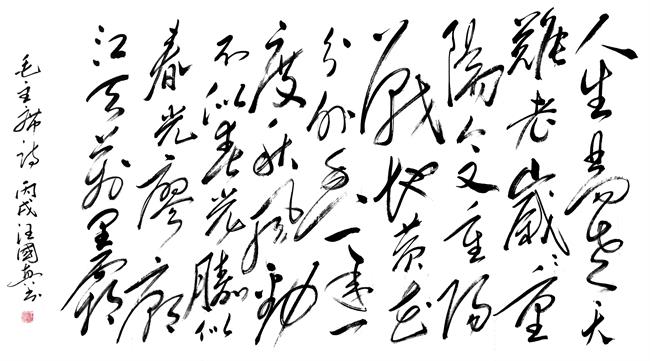 人生易老天
難老歲々重
陽今又重陽
戰地黃花
分外香一年一
度秋風勁
不似春光勝似
春光廖廓
江天萬里霜
毛主席詩 丙戌汪國真書